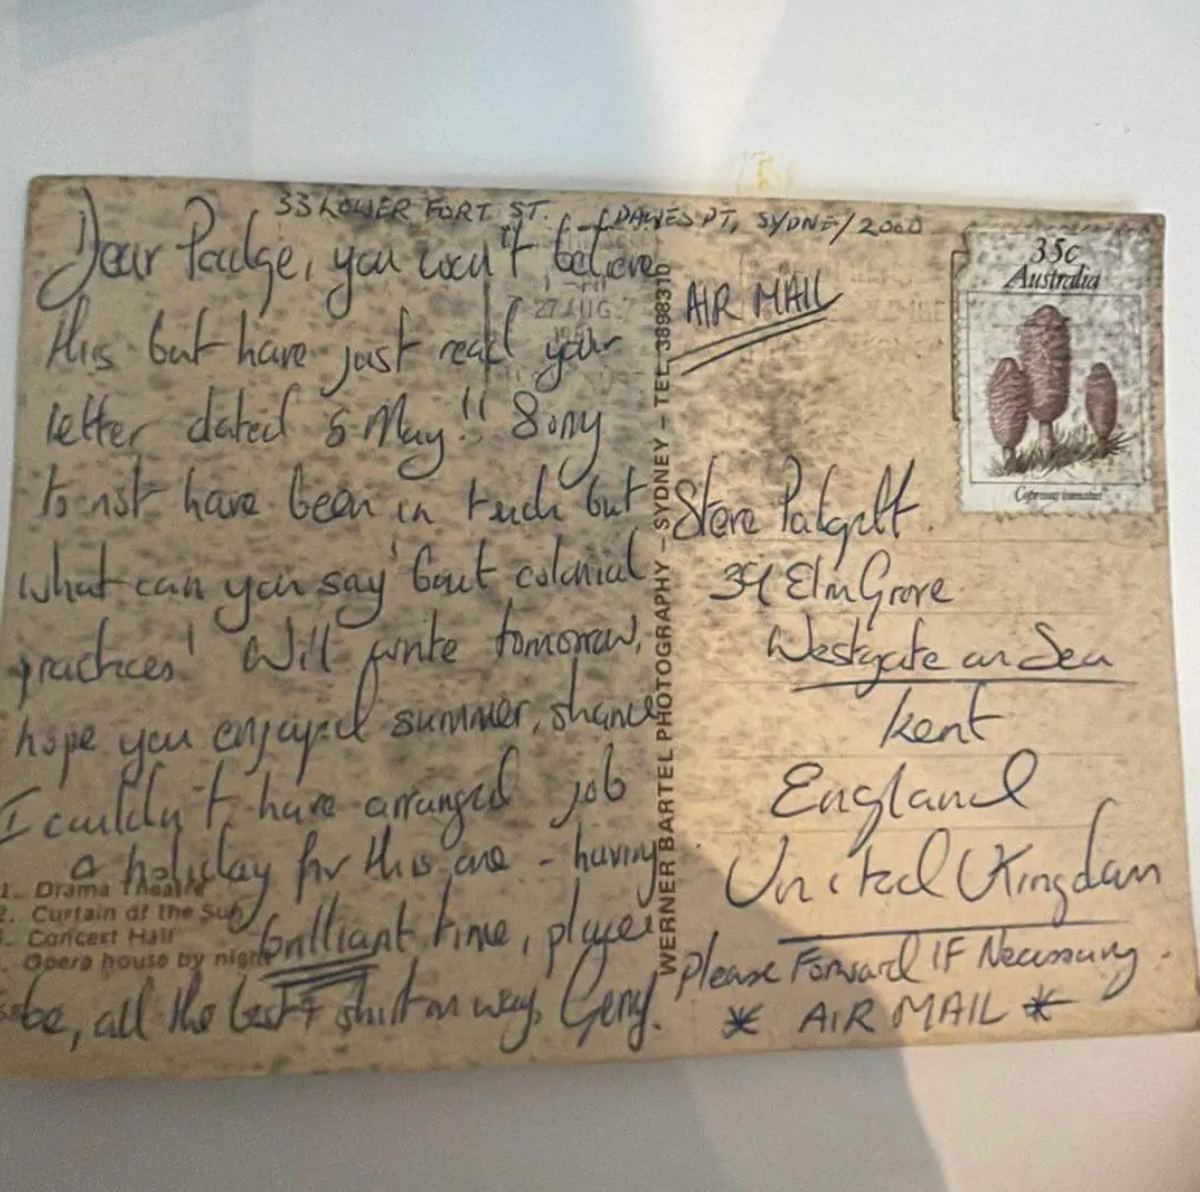 33 LOWER FORT ST. DAWES PT, SYDNEY 2000
Dear Padge, you won't believe
this but have just read your
letter dated 5 May!! Sorry
to not have been in touch but
what can you say 'bout colonial
practices! Will write tomorrow,
hope you enjoyed summer, shame
I couldn't have arranged job
a holiday for this one - having
brilliant time, place
be, all the best + shirt on way, Gerry.
1. Drama Theatre
2. Curtain of the Sun
Concert Hall
Opera house by night
WERNER BARTEL PHOTOGRAPHY – SYDNEY – TEL 3898310
27 AUG
AIR MAIL
35c
Australia
Coprinus comatus
Steve
Elm Grove
Westgate on Sea
Kent
England
United Kingdom
Please Forward IF Necessary.
* AIR MAIL *